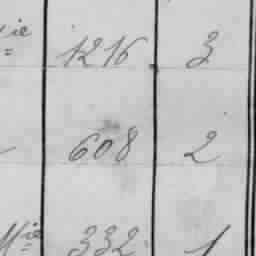 ie 1216 3
608 2
Mie 332 1